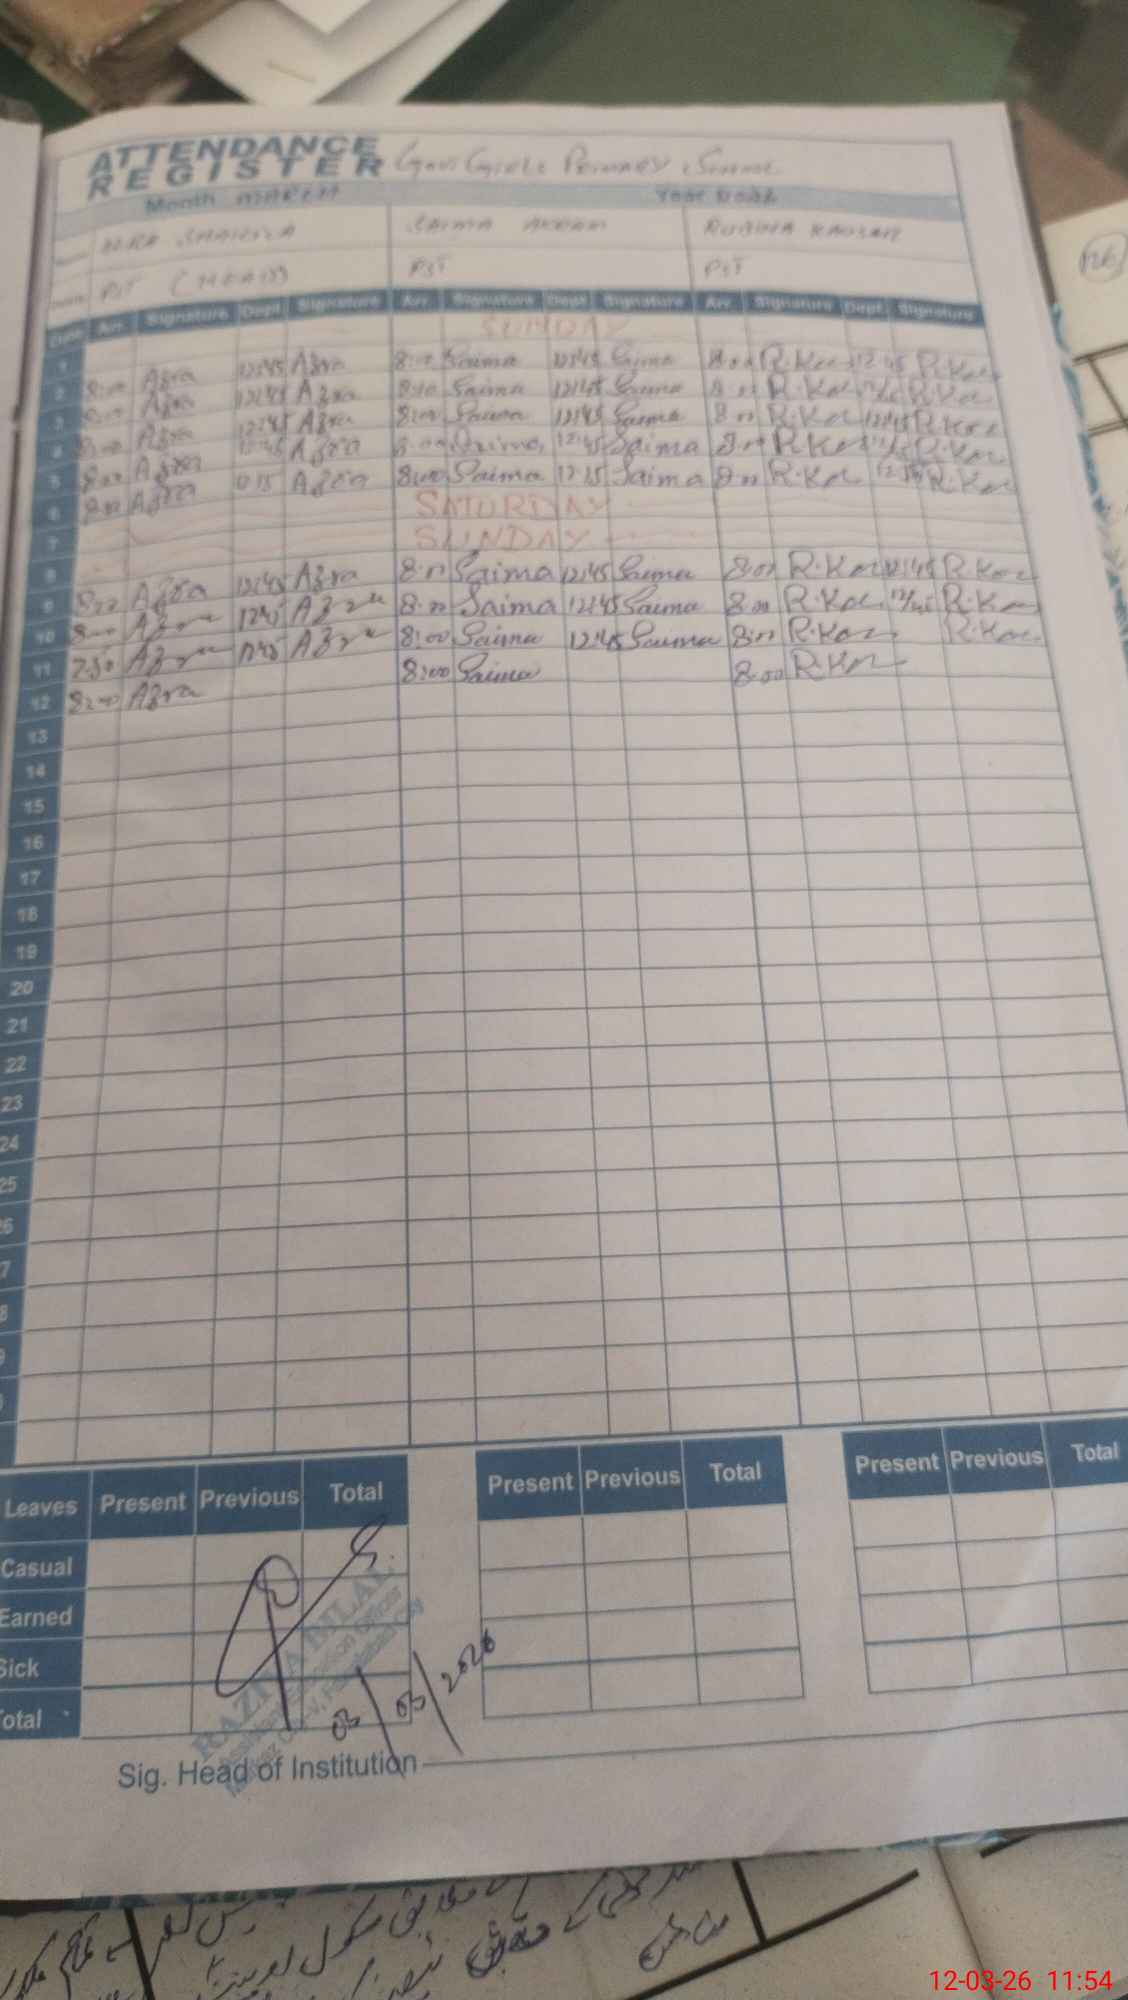 ATTENDANCE
REGISTER Govt Girls Primary School
Month MARCH Year 2026
SAIMA AKRAM RUBINA KAUSAR
PST (HEAD) PST PST
Date Arr. Signature Dept. Signature Arr. Signature Dept. Signature Arr. Signature Dept. Signature
1 SUNDAY
2 8:00 Azra 12:45 Azra 8:00 Saima 12:45 Saima 8:00 R.Kou 12:45 R.Kou
3 8:00 Azra 12:45 Azra 8:00 Saima 12:45 Saima 8:00 R.Kou R.Kou
4 8:00 Azra 12:45 Azra 8:00 Saima 12:45 Saima 8:00 R.Kou 12:45 R.Kou
5 8:00 Azra 12:45 Azra 8:00 Saima 12:45 Saima 8:00 R.Kou R.Kou
6 8:00 Azra Azra 8:00 Saima Saima 8:00 R.Kou R.Kou
7 SATURDAY
8 SUNDAY
9 8:00 Azra 12:45 Azra 8:00 Saima 12:45 Saima 8:00 R.Kou 12:45 R.Kou
10 8:00 Azra 12:45 Azra 8:00 Saima 12:45 Saima 8:00 R.Kou 12:45 R.Kou
11 7:50 Azra 12:45 Azra 8:00 Saima 12:45 Saima 8:00 R.Kou R.Kou
12 8:00 Azra 8:00 Saima 8:00 R.Kou
13
14
15
16
17
18
19
20
21
22
23
24
25
26
7
8
9
Leaves Present Previous Total Present Previous Total Present Previous Total
Casual
Earned
Sick
Total
RAZIA BILAL
Assistant Education Officer
Faisalabad City
03/03/2026
Sig. Head of Institution
126
12-03-26 11:54